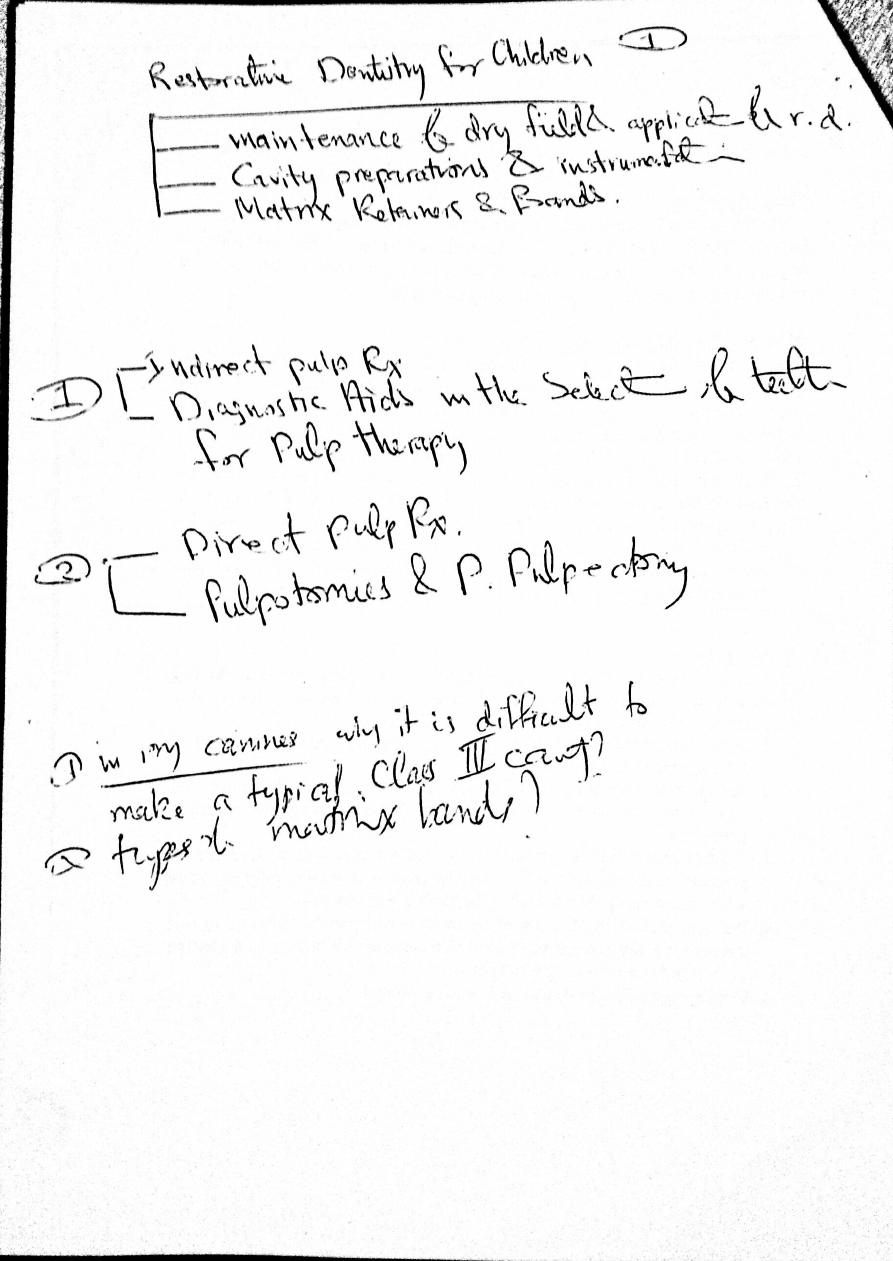 Restorative Dentistry for Children ①
maintenance of dry field & applicat of r.d.
Cavity preparations & instrumentat
Matrix Retainers & Bands.
① Indirect pulp Rx
Diagnostic Aids in the Select of teeth
for Pulp therapy
② Direct Pulp Rx.
Pulpotomies & P. Pulpectomy
① in 1ry canines why it is difficult to
make a typical Class III cavity?
② types of matrix bands?